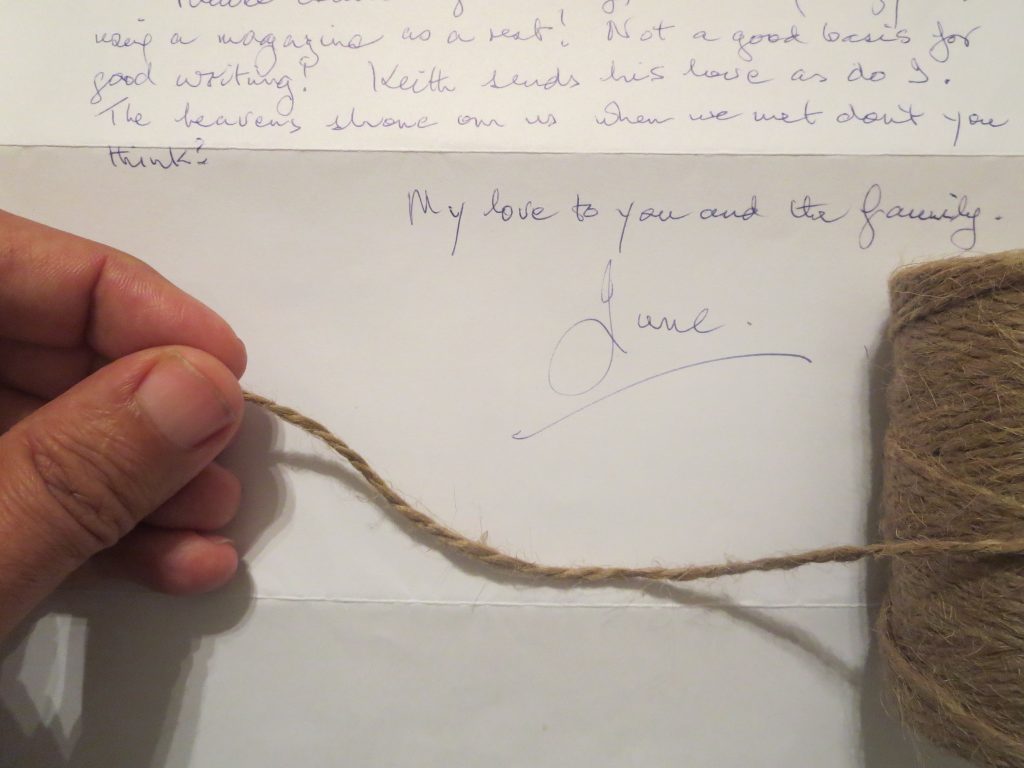 using a magazine as a rest! Not a good basis for
good writing! Keith sends his love as do I.
The heavens shone on us when we met don't you
think?
My love to you and the family.
June.